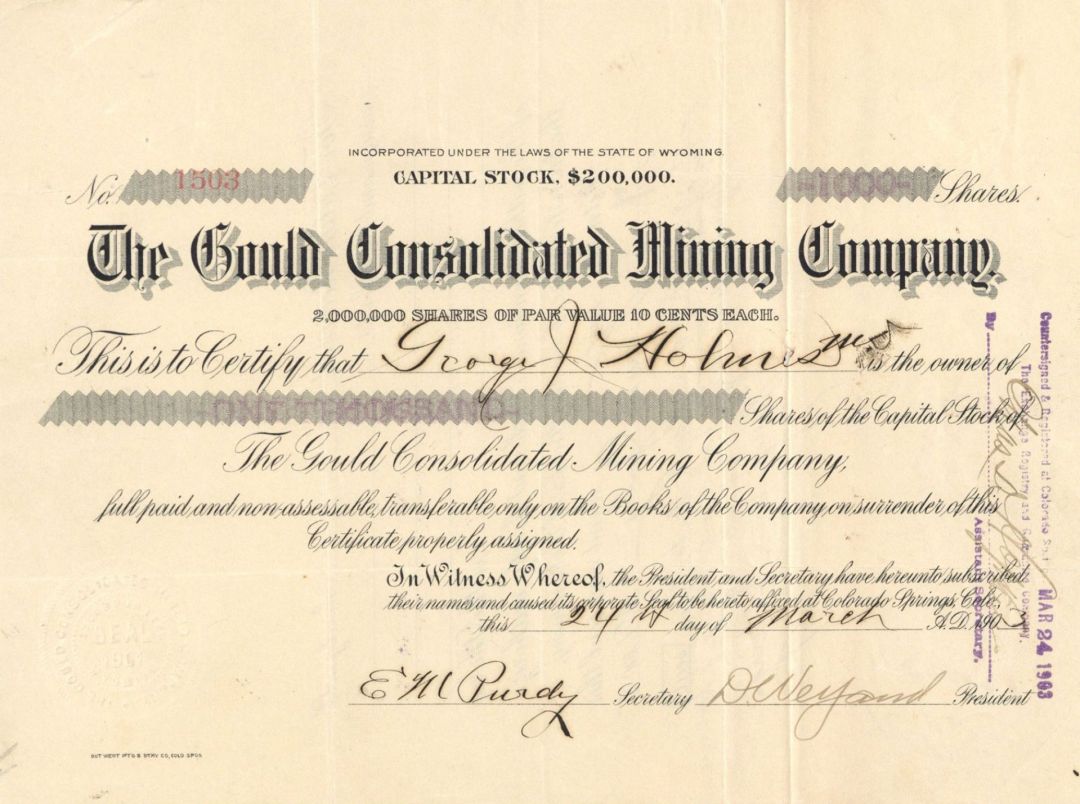 INCORPORATED UNDER THE LAWS OF THE STATE OF WYOMING.
CAPITAL STOCK, $200,000.
No. 1503
-1000- Shares.
The Gould Consolidated Mining Company.
2,000,000 SHARES OF PAR VALUE 10 CENTS EACH.
This is to Certify that George J Holmes is the owner of
-ONE THOUSAND- Shares of the Capital Stock of
The Gould Consolidated Mining Company,
full paid and non-assessable, transferable only on the Books of the Company on surrender of this
Certificate properly assigned.
In Witness Whereof, the President and Secretary have hereunto subscribed
their names and caused its corporate Seal to be hereto affixed at Colorado Springs, Colo.,
this 24th day of March A.D. 1903
E M Purdy Secretary D Weyand President
Countersigned & Registered at Colorado
The Registry and Company,
MAR 24 1903
By
Assistant Secretary.